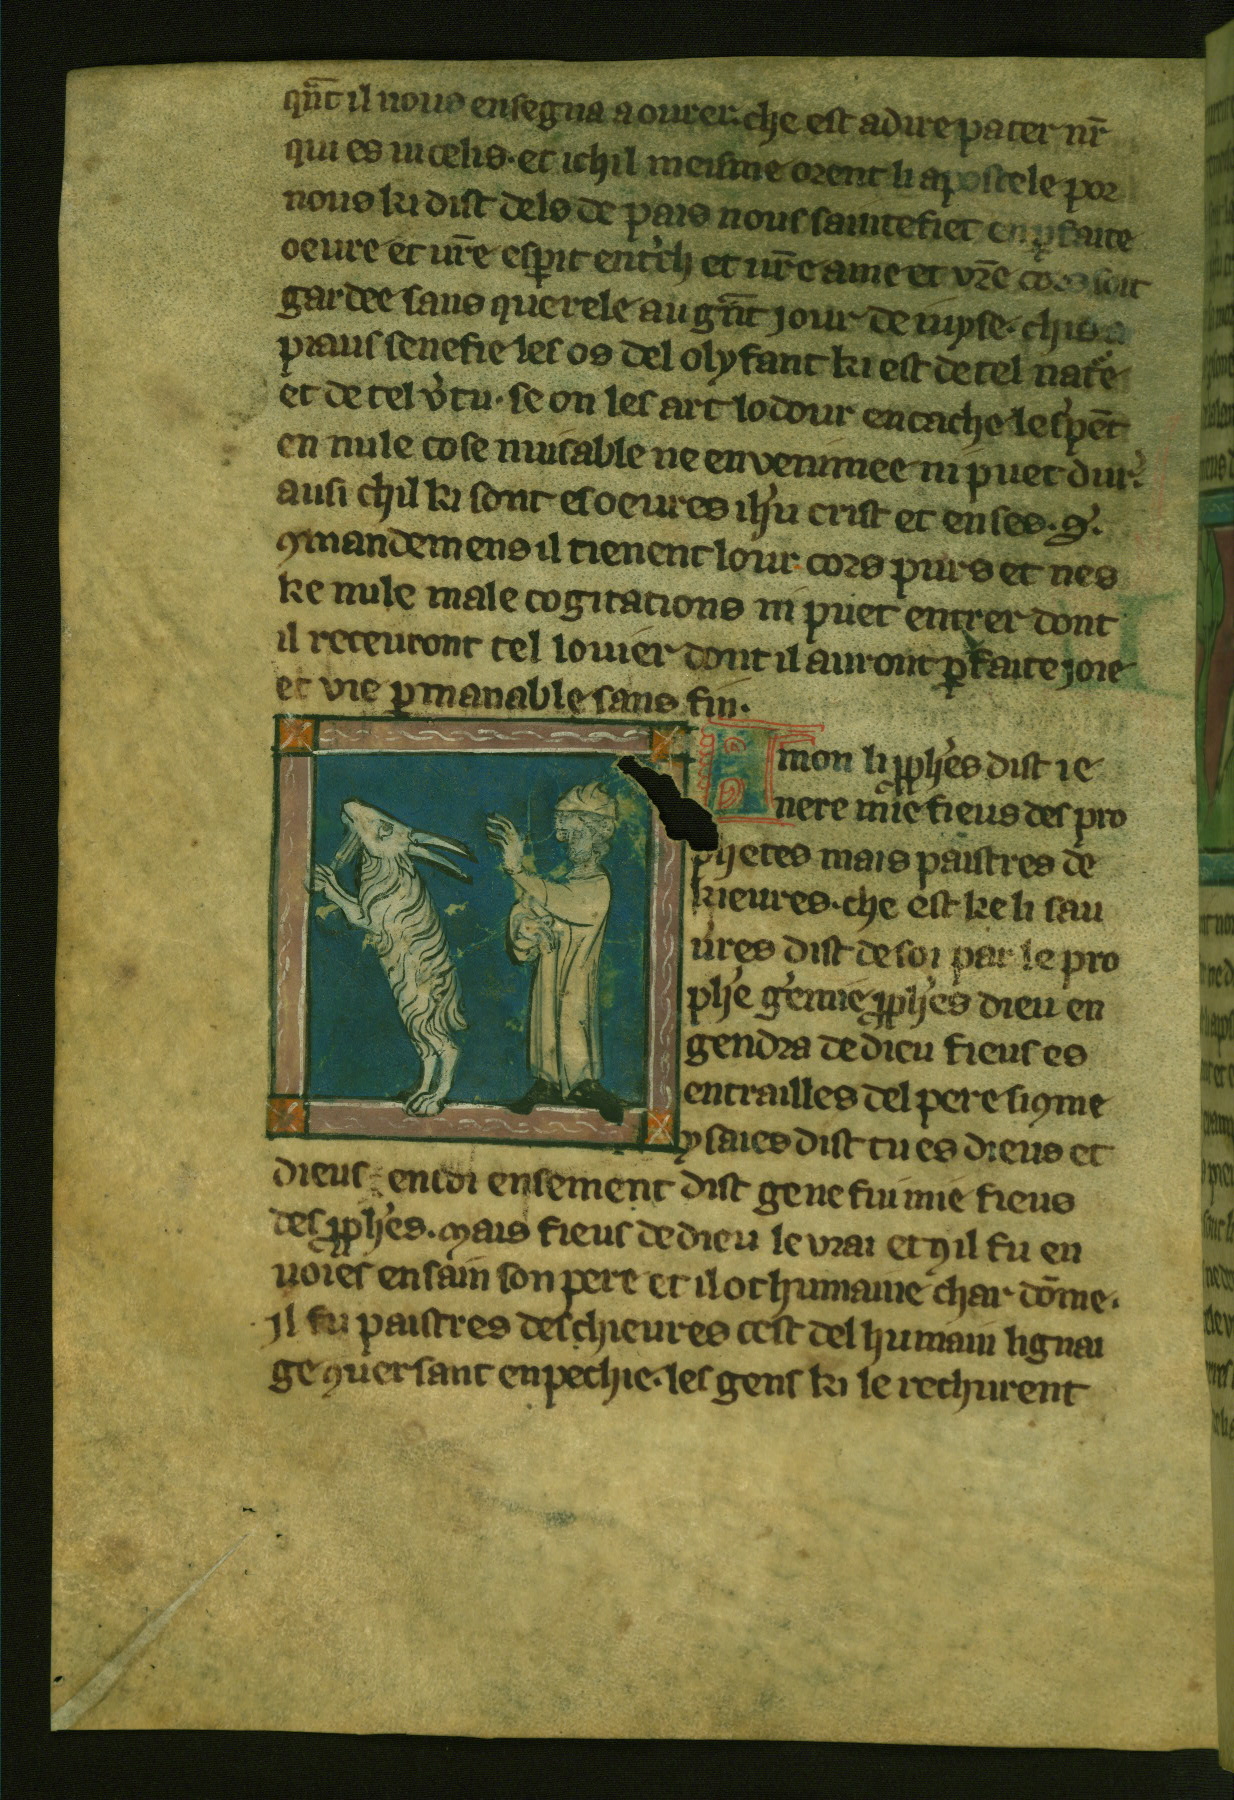 qn̄t il nous ensegna a ourer. che est a dire pater nr̄
qui es in celis. et ichil meisme orent li apostele por
nous ki dist dels de pais nous saintefiet en ꝑfaite
oeure et ur̄e esperit enťch et ur̄e ame et vr̄e cors soit
gardee sans querele au gn̄t jour de iuyse. chis a
praus senefie les os del olyfant ki est de tel naťe
et de tel v̓tu. se on les art lodour encache le s̓pēt
en nule cose nuisable ne envenimee ni puet dur̓.
ausi chil ki sont es oeures ih̓u crist et en ses .9̓.
ꝯmandemens il tienent lour cors purs et nes
ke nule male cogitations ni puet entrer dont
il receuront tel louier dont il auront ꝑfaite joie
et vie ꝑmanable sans fin.
Amon li ꝓph̓es dist ie
nere mie fieus des pro
phetes mais paistres de
kieures. che est ke li sau
u̓res dist de soi par le pro
ph̓e g̓emie ꝓph̓es dieu en
gendra de dieu fieus es
entrailles del pere si ꝯme
ysaies dist tu es dieus et
dieus en toi ensement dist ge ne fui mie fieus
des ꝓph̓es. mais fieus de dieu le vrai et ꝯ il fu en
uoies en sain son pere et il ot humaine char dōme.
Il fu paistres des chieures cest del humain lignai
ge ꝯuersant en pechie. les gens ki le rechurent